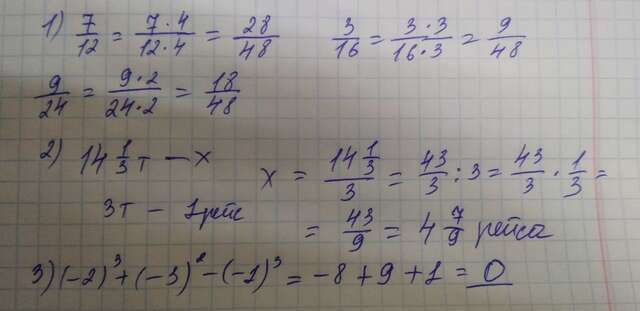 1) 7/12 = 7·4/12·4 = 28/48   3/16 = 3·3/16·3 = 9/48
9/24 = 9·2/24·2 = 18/48
2) 14 1/3 т — х   х = 14 1/3 / 3 = 43/3 : 3 = 43/3 · 1/3 =
3т — 1 рейс   = 43/9 = 4 7/9 рейса
3) (-2)³ + (-3)² - (-1)³ = -8 + 9 + 1 = 0